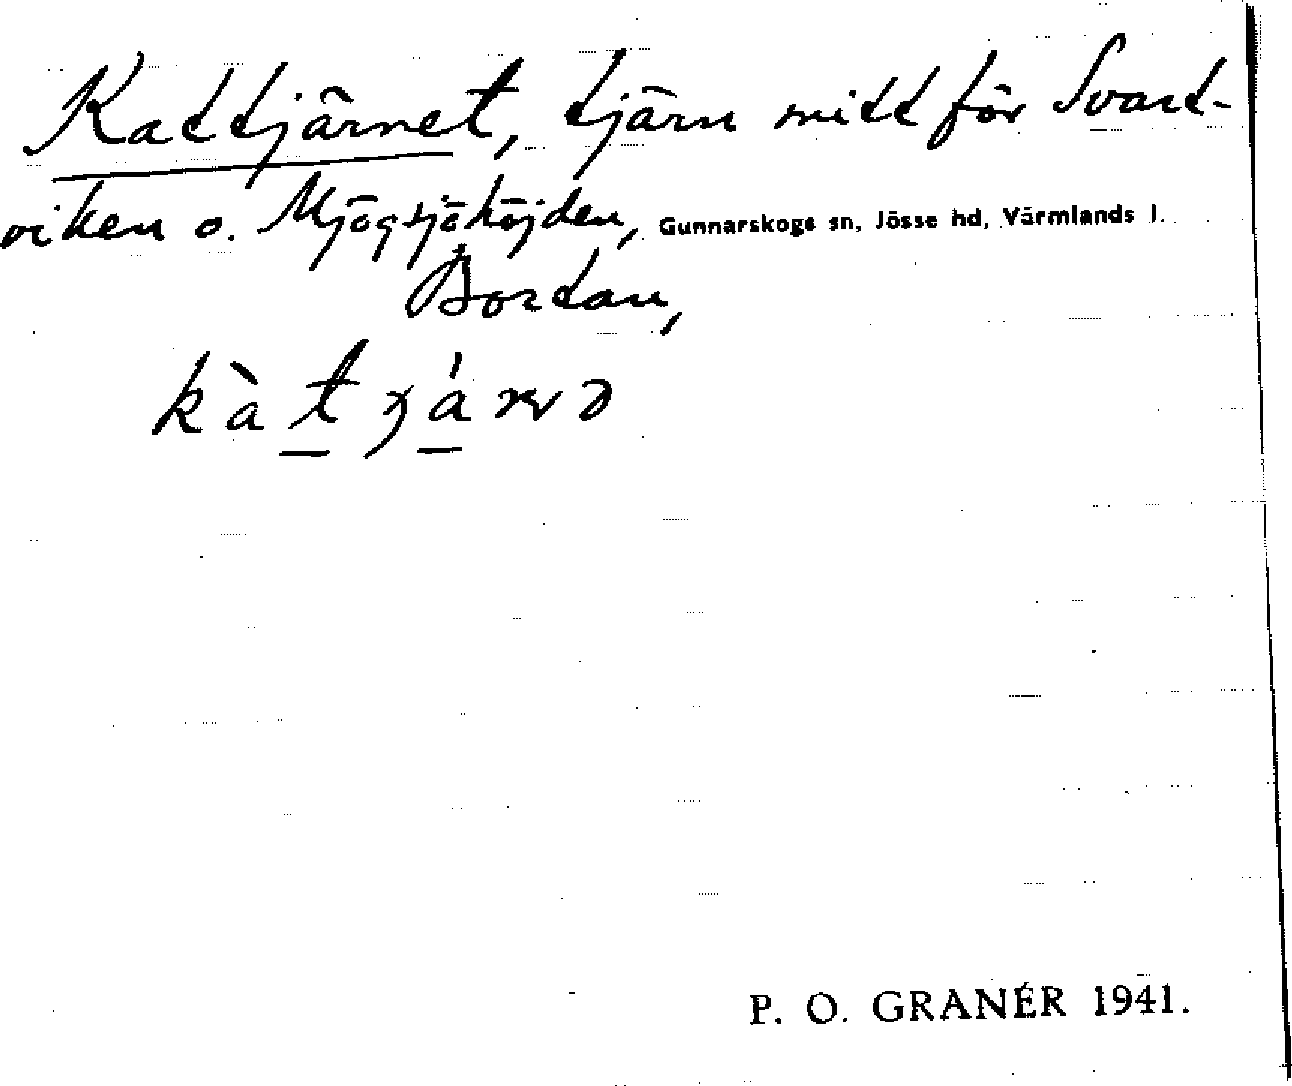 Kattjärnet, tjärn mitt för Svart-
viken o. Mjögsjöhöjden, Gunnarskogs sn, Jösse hd, Värmlands l.
Bortan,
P. O. GRANÉR 1941.